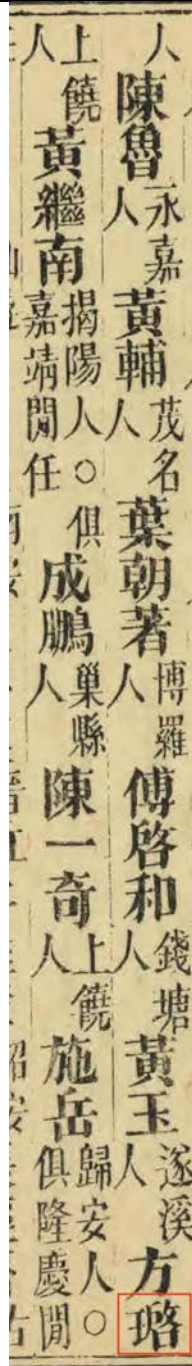 人陳魯永嘉人黃輔茂名人葉朝著博羅人傅啓和錢塘人黃玉遂溪人方璐
上饒人黃繼南揭陽人○俱嘉靖間任成鵬巢縣人陳一奇上饒人施岳歸安人○俱隆慶間